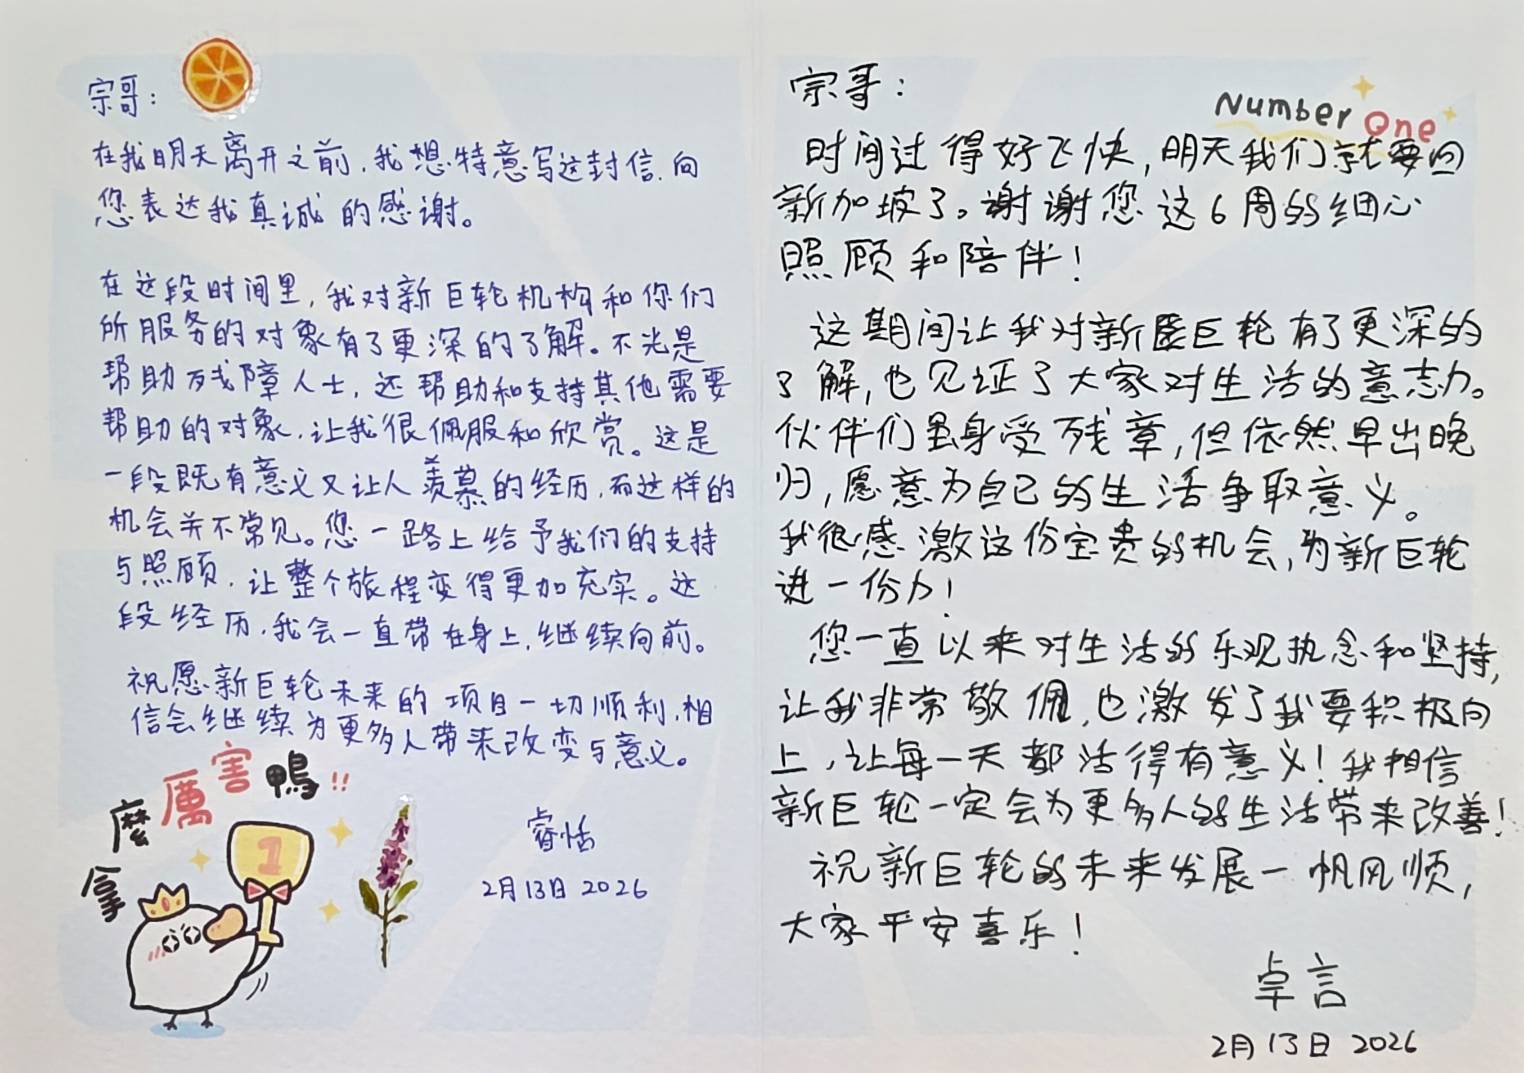 宗哥：
在我明天离开之前，我想特意写这封信，向
您表达我真诚的感谢。
在这段时间里，我对新巨轮机构和你们
所服务的对象有了更深的了解。不光是
帮助残障人士，还帮助和支持其他需要
帮助的对象，让我很佩服和欣赏。这是
一段既有意义又让人羡慕的经历，而这样的
机会并不常见。您一路上给予我们的支持
与照顾，让整个旅程变得更加充实。这
段经历，我会一直带在身上，继续向前。
祝愿新巨轮未来的项目一切顺利，相
信会继续为更多人带来改变与意义。
睿恬
2月13日 2026
拿麼厲害鴨!!
1
Number One
宗哥：
时间过得好飞快，明天我们就要回
新加坡了。谢谢您这6周的细心
照顾和陪伴！
这期间让我对新巨轮有了更深的
了解，也见证了大家对生活的意志力。
伙伴们虽身受残章，但依然早出晚
归，愿意为自己的生活争取意义。
我很感激这份宝贵的机会，为新巨轮
进一份力！
您一直以来对生活的乐观执念和坚持，
让我非常敬佩，也激发了我要积极向
上，让每一天都活得有意义！我相信
新巨轮一定会为更多人的生活带来改善！
祝新巨轮的未来发展一帆风顺，
大家平安喜乐！
卓言
2月13日 2026